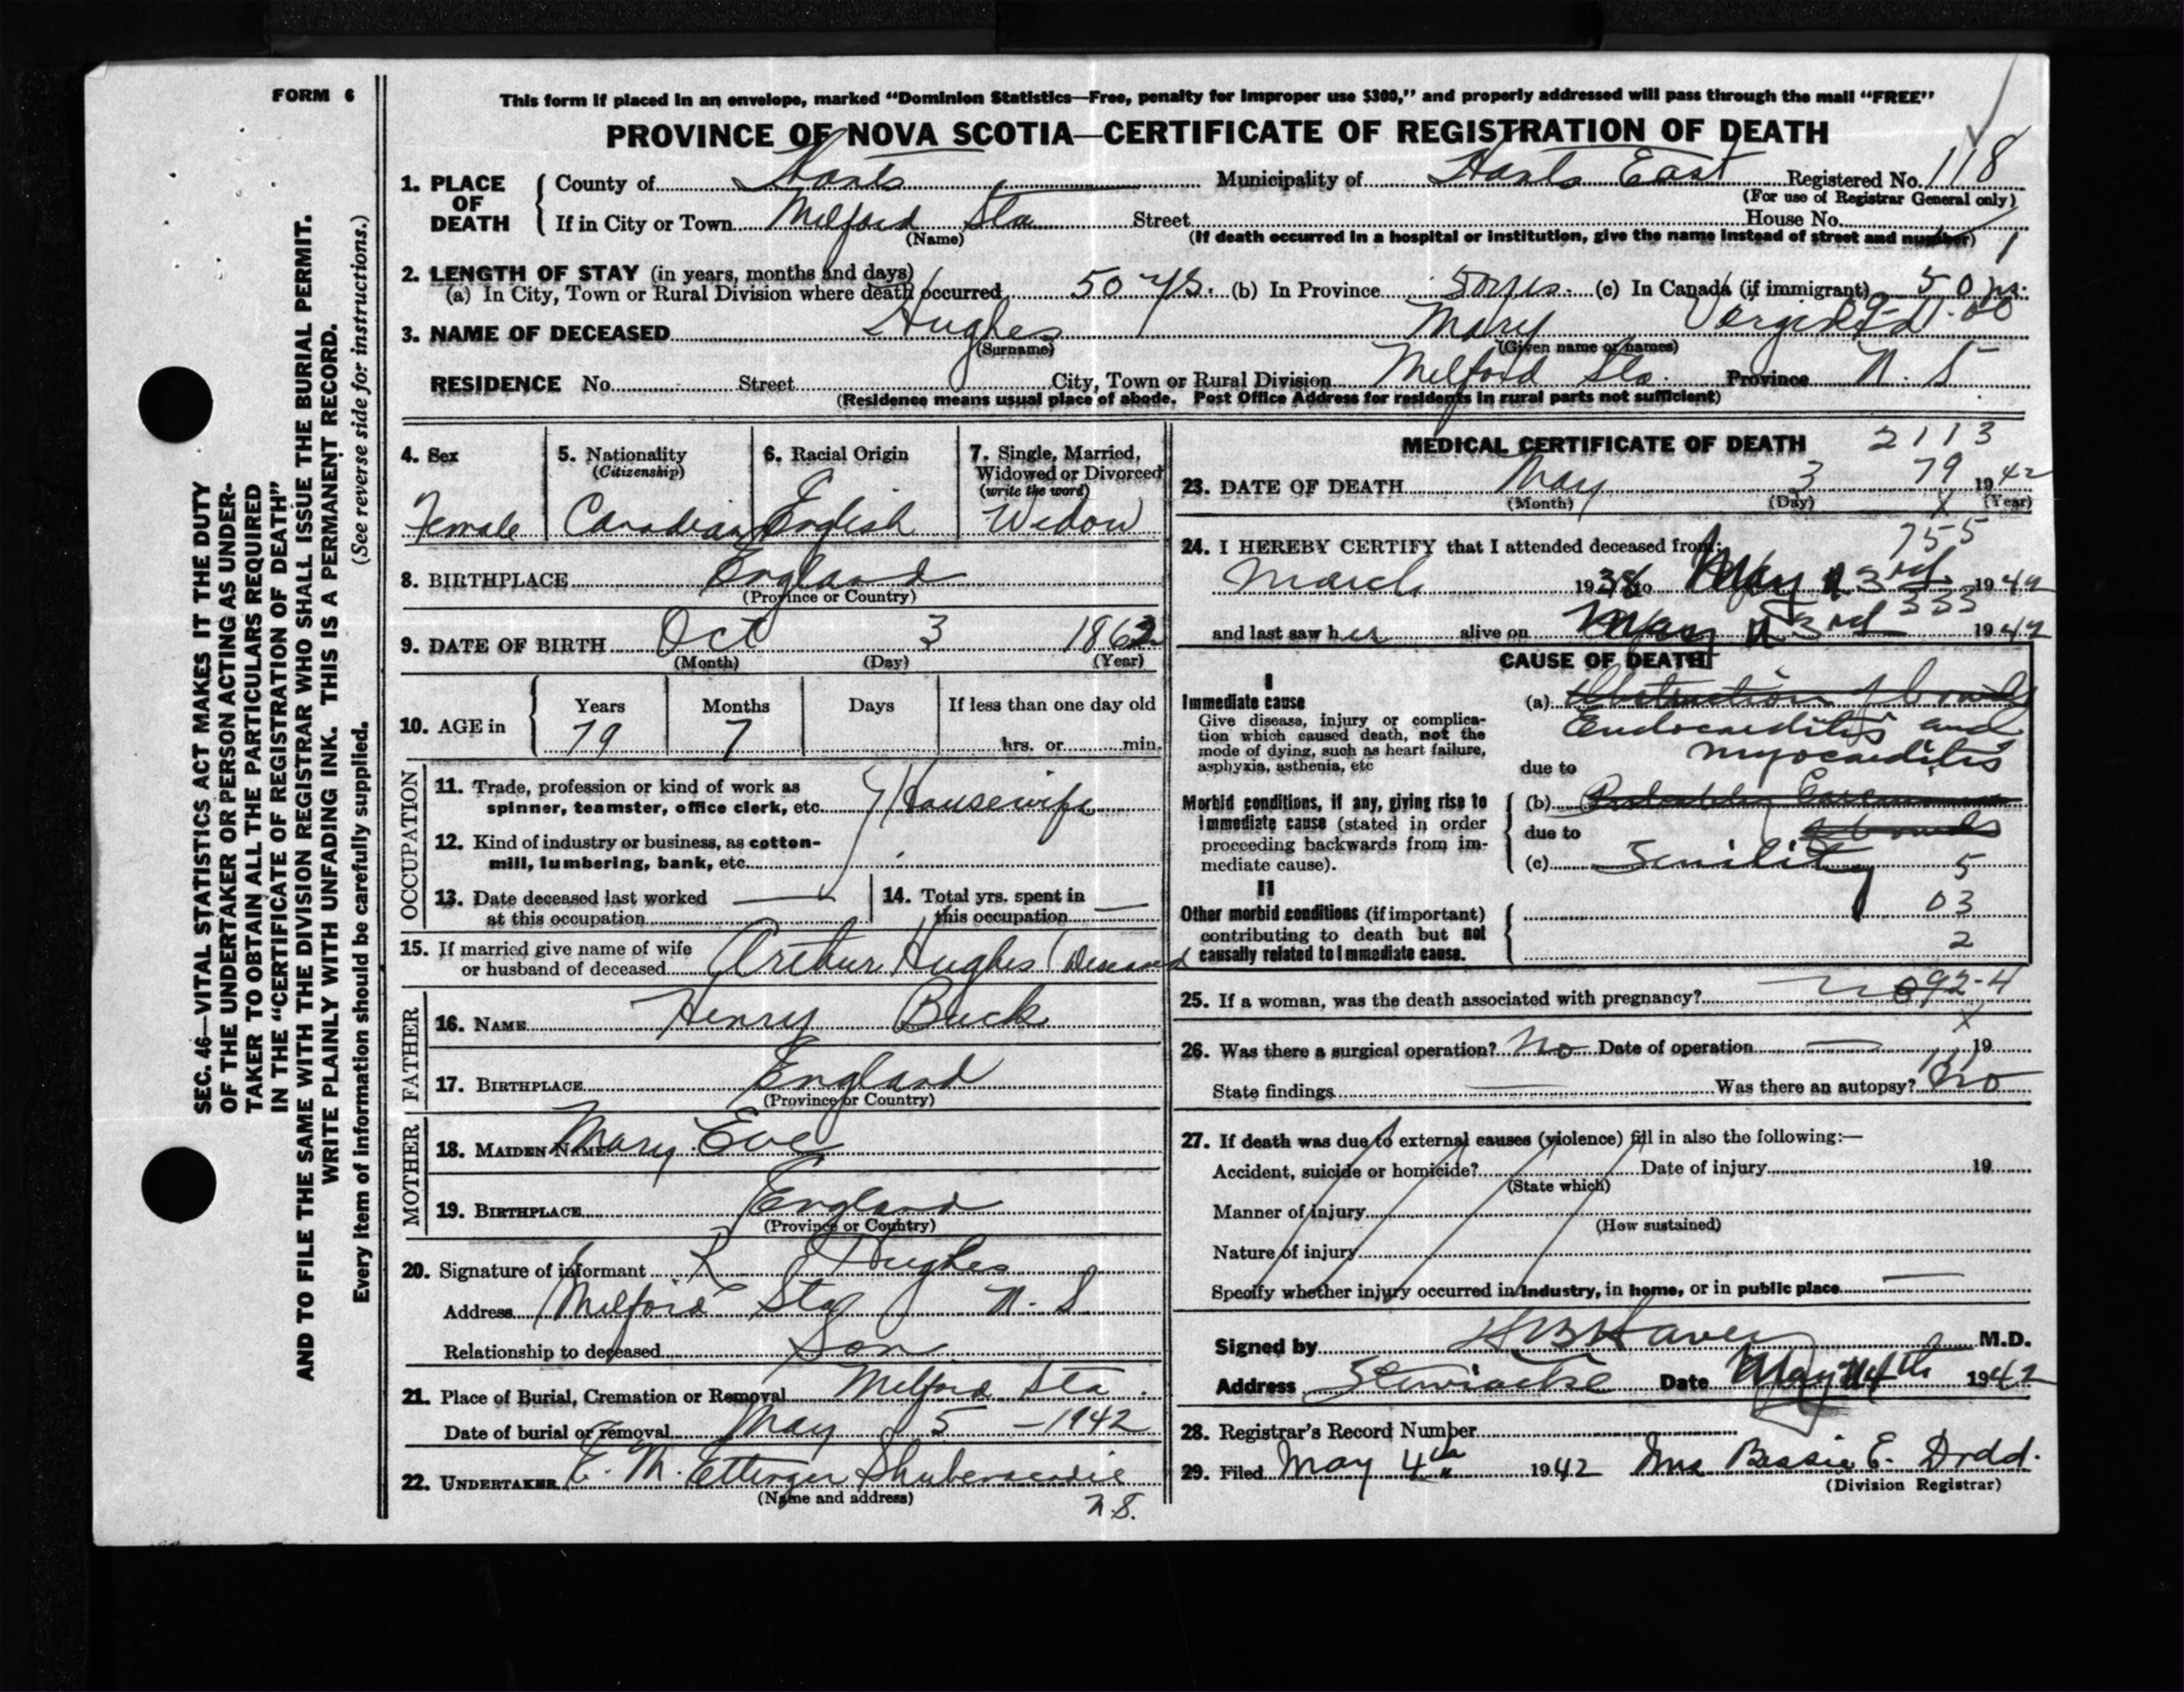 FORM 6
This form if placed in an envelope, marked "Dominion Statistics—Free, penalty for improper use $300," and properly addressed will pass through the mail "FREE"
PROVINCE OF NOVA SCOTIA—CERTIFICATE OF REGISTRATION OF DEATH
1. PLACE OF DEATH
County of Hants Municipality of Hants East Registered No. 118
(For use of Registrar General only)
If in City or Town Milford Sta Street House No.
(Name) (If death occurred in a hospital or institution, give the name instead of street and number) 1
2. LENGTH OF STAY (in years, months and days)
(a) In City, Town or Rural Division where death occurred 50 yrs. (b) In Province 50 yrs. (c) In Canada (if immigrant) 50 yrs.
3. NAME OF DECEASED Hughes Mary
(Surname) (Given name or names)
RESIDENCE No. Street City, Town or Rural Division Milford Sta. Province N. S
(Residence means usual place of abode. Post Office Address for residents in rural parts not sufficient)
4. Sex 5. Nationality 6. Racial Origin 7. Single, Married,
(Citizenship) Widowed or Divorced
(write the word)
Female Canadian English Widow
8. BIRTHPLACE England
(Province or Country)
9. DATE OF BIRTH Oct 3 1862
(Month) (Day) (Year)
10. AGE in Years Months Days If less than one day old
79 7 hrs. or min.
OCCUPATION
11. Trade, profession or kind of work as
spinner, teamster, office clerk, etc. Housewife
12. Kind of industry or business, as cotton-
mill, lumbering, bank, etc.
13. Date deceased last worked — 14. Total yrs. spent in —
at this occupation this occupation
15. If married give name of wife
or husband of deceased Arthur Hughes (Deceased
FATHER
16. NAME Henry Buck
17. BIRTHPLACE England
(Province or Country)
MOTHER
18. MAIDEN NAME Mary Eve
19. BIRTHPLACE England
(Province or Country)
20. Signature of informant R Hughes
Address Milford Sta N. S
Relationship to deceased Son
21. Place of Burial, Cremation or Removal Milford Sta.
Date of burial or removal May 5 - 1942
22. UNDERTAKER E. M. Ettinger Shubenacadie
(Name and address) N.S.
MEDICAL CERTIFICATE OF DEATH 2113
79
23. DATE OF DEATH May 3 1942
(Month) (Day) (Year)
x
755
24. I HEREBY CERTIFY that I attended deceased from:
March 1938 to May 3rd 1942
333
and last saw her alive on May 3rd 1942
CAUSE OF DEATH
I
Immediate cause
Give disease, injury or complica-
tion which caused death, not the
mode of dying, such as heart failure,
asphyxia, asthenia, etc
(a) Obstruction of bowels
Endocarditis and
myocarditis
due to
Morbid conditions, if any, giving rise to
immediate cause (stated in order
proceeding backwards from im-
mediate cause).
(b) Probably
due to bowels
(c) Senility 5
II
Other morbid conditions (if important)
contributing to death but not
causally related to immediate cause.
03
2
25. If a woman, was the death associated with pregnancy? no 92-4
x
26. Was there a surgical operation? No Date of operation — 19
State findings — Was there an autopsy? No
27. If death was due to external causes (violence) fill in also the following:—
Accident, suicide or homicide? Date of injury 19
(State which)
Manner of injury
(How sustained)
Nature of injury
Specify whether injury occurred in industry, in home, or in public place —
Signed by M.D.
Address Stewiacke Date May 4th 1942
28. Registrar's Record Number
29. Filed May 4th 1942 Mrs Bessie E. Dodd.
(Division Registrar)
SEC. 46—VITAL STATISTICS ACT MAKES IT THE DUTY
OF THE UNDERTAKER OR PERSON ACTING AS UNDER-
TAKER TO OBTAIN ALL THE PARTICULARS REQUIRED
IN THE "CERTIFICATE OF REGISTRATION OF DEATH"
AND TO FILE THE SAME WITH THE DIVISION REGISTRAR WHO SHALL ISSUE THE BURIAL PERMIT.
WRITE PLAINLY WITH UNFADING INK. THIS IS A PERMANENT RECORD.
Every item of information should be carefully supplied. (See reverse side for instructions.)